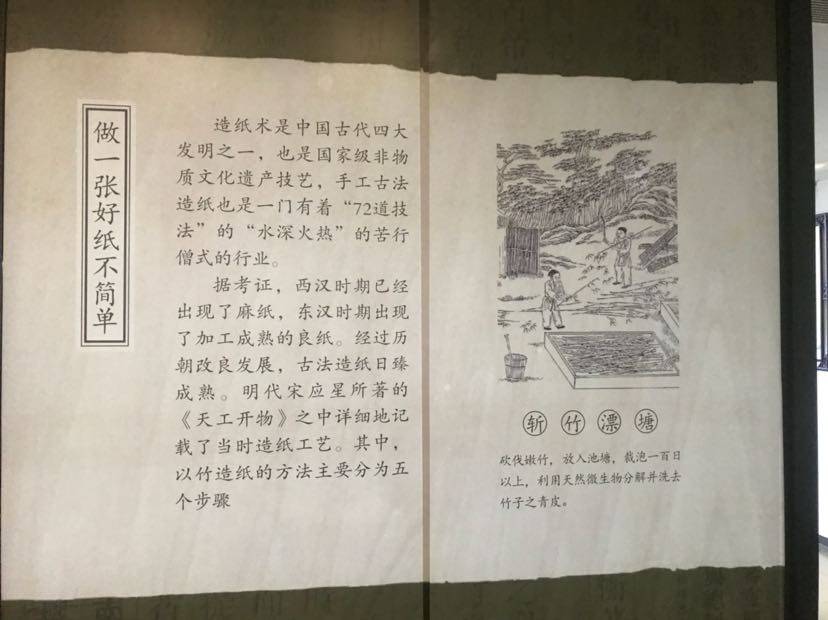 做一张好纸不简单
造纸术是中国古代四大
发明之一，也是国家级非物
质文化遗产技艺，手工古法
造纸也是一门有着“72道技
法”的“水深火热”的苦行
僧式的行业。
据考证，西汉时期已经
出现了麻纸，东汉时期出现
了加工成熟的良纸。经过历
朝改良发展，古法造纸日臻
成熟。明代宋应星所著的
《天工开物》之中详细地记
载了当时造纸工艺。其中，
以竹造纸的方法主要分为五
个步骤
斩竹漂塘
砍伐嫩竹，放入池塘，截泡一百日
以上，利用天然微生物分解并洗去
竹子之青皮。